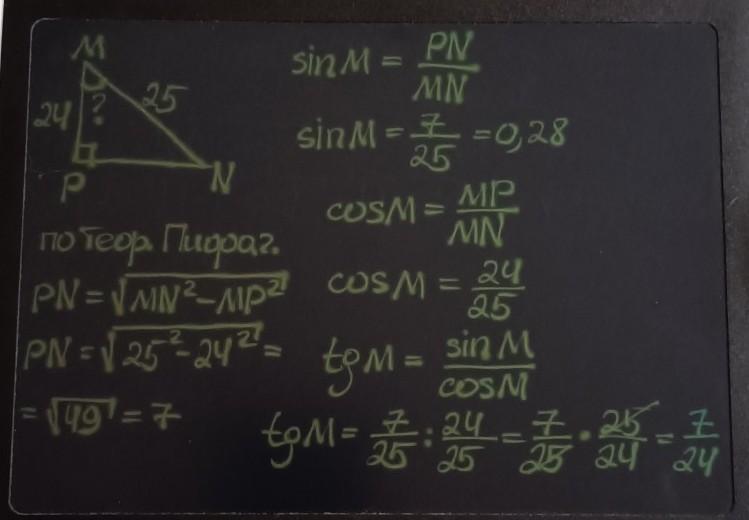 M
24
?
25
P
N
по теор. Пифраг.
PN = √MN² - MP²
PN = √25² - 24² =
= √49 = 7
sinM = PN/MN
sinM = 7/25 = 0,28
cosM = MP/MN
cosM = 24/25
tgM = sinM/cosM
tgM = 7/25 : 24/25 = 7/25 · 25/24 = 7/24